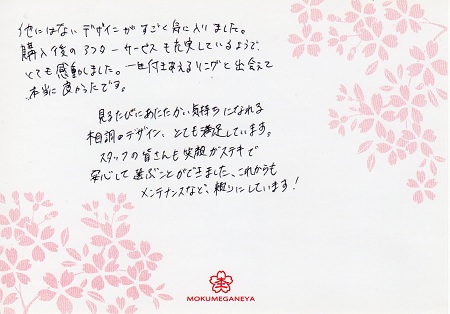 他にはないデザインがすごく気に入りました。
購入後のアフターサービスも充実しているようで
とても感動しました。一生付き合えるリングと出会えて
本当に良かったです。
見るたびにあたたかい気持ちになれる
桜調のデザイン、とても満足しています。
スタッフの皆さんも笑顔がステキで
安心して選ぶことができました、これからも
メンテナンスなど、頼りにしています!
MOKUMEGANEYA